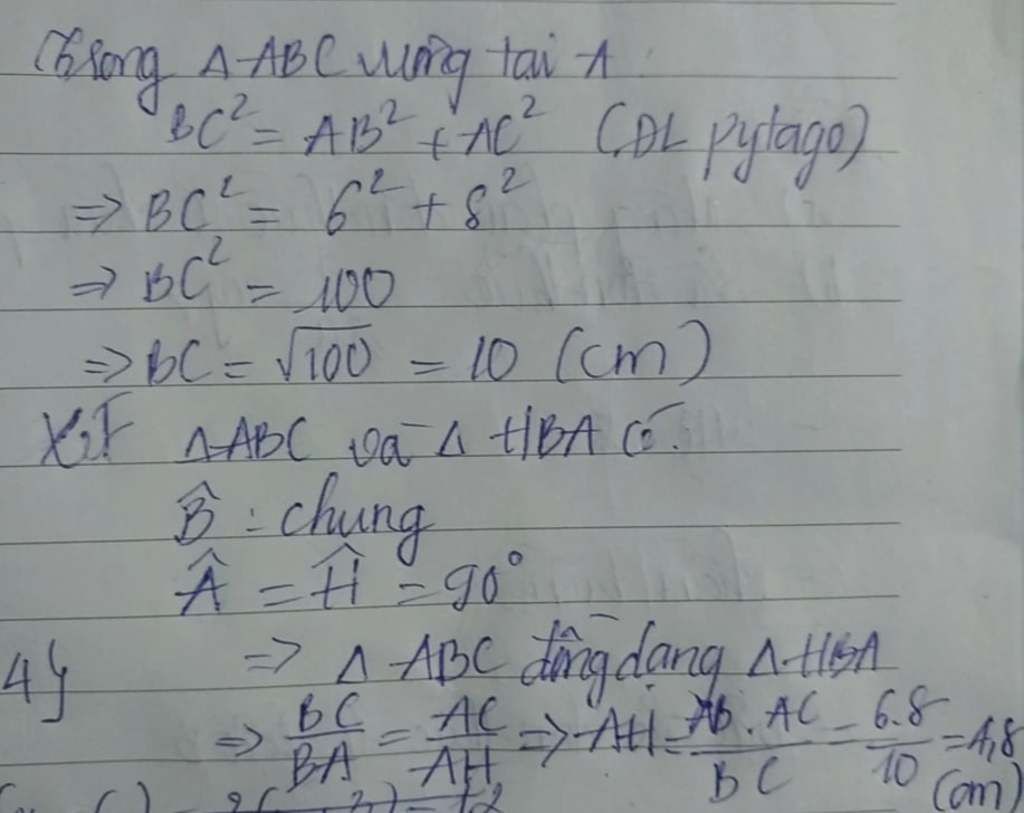 Trong ΔABC vuông tại A
BC² = AB² + AC² (ĐL pytago)
=> BC² = 6² + 8²
=> BC² = 100
=> BC = √100 = 10 (cm)
Xét ΔABC và Δ HBA có:
B̂ : chung
Â = Ĥ = 90°
=> Δ ABC đồng dạng Δ HBA
=> BC/BA = AC/AH => AH = AB . AC / BC = 6.8/10 = 4,8 (cm)